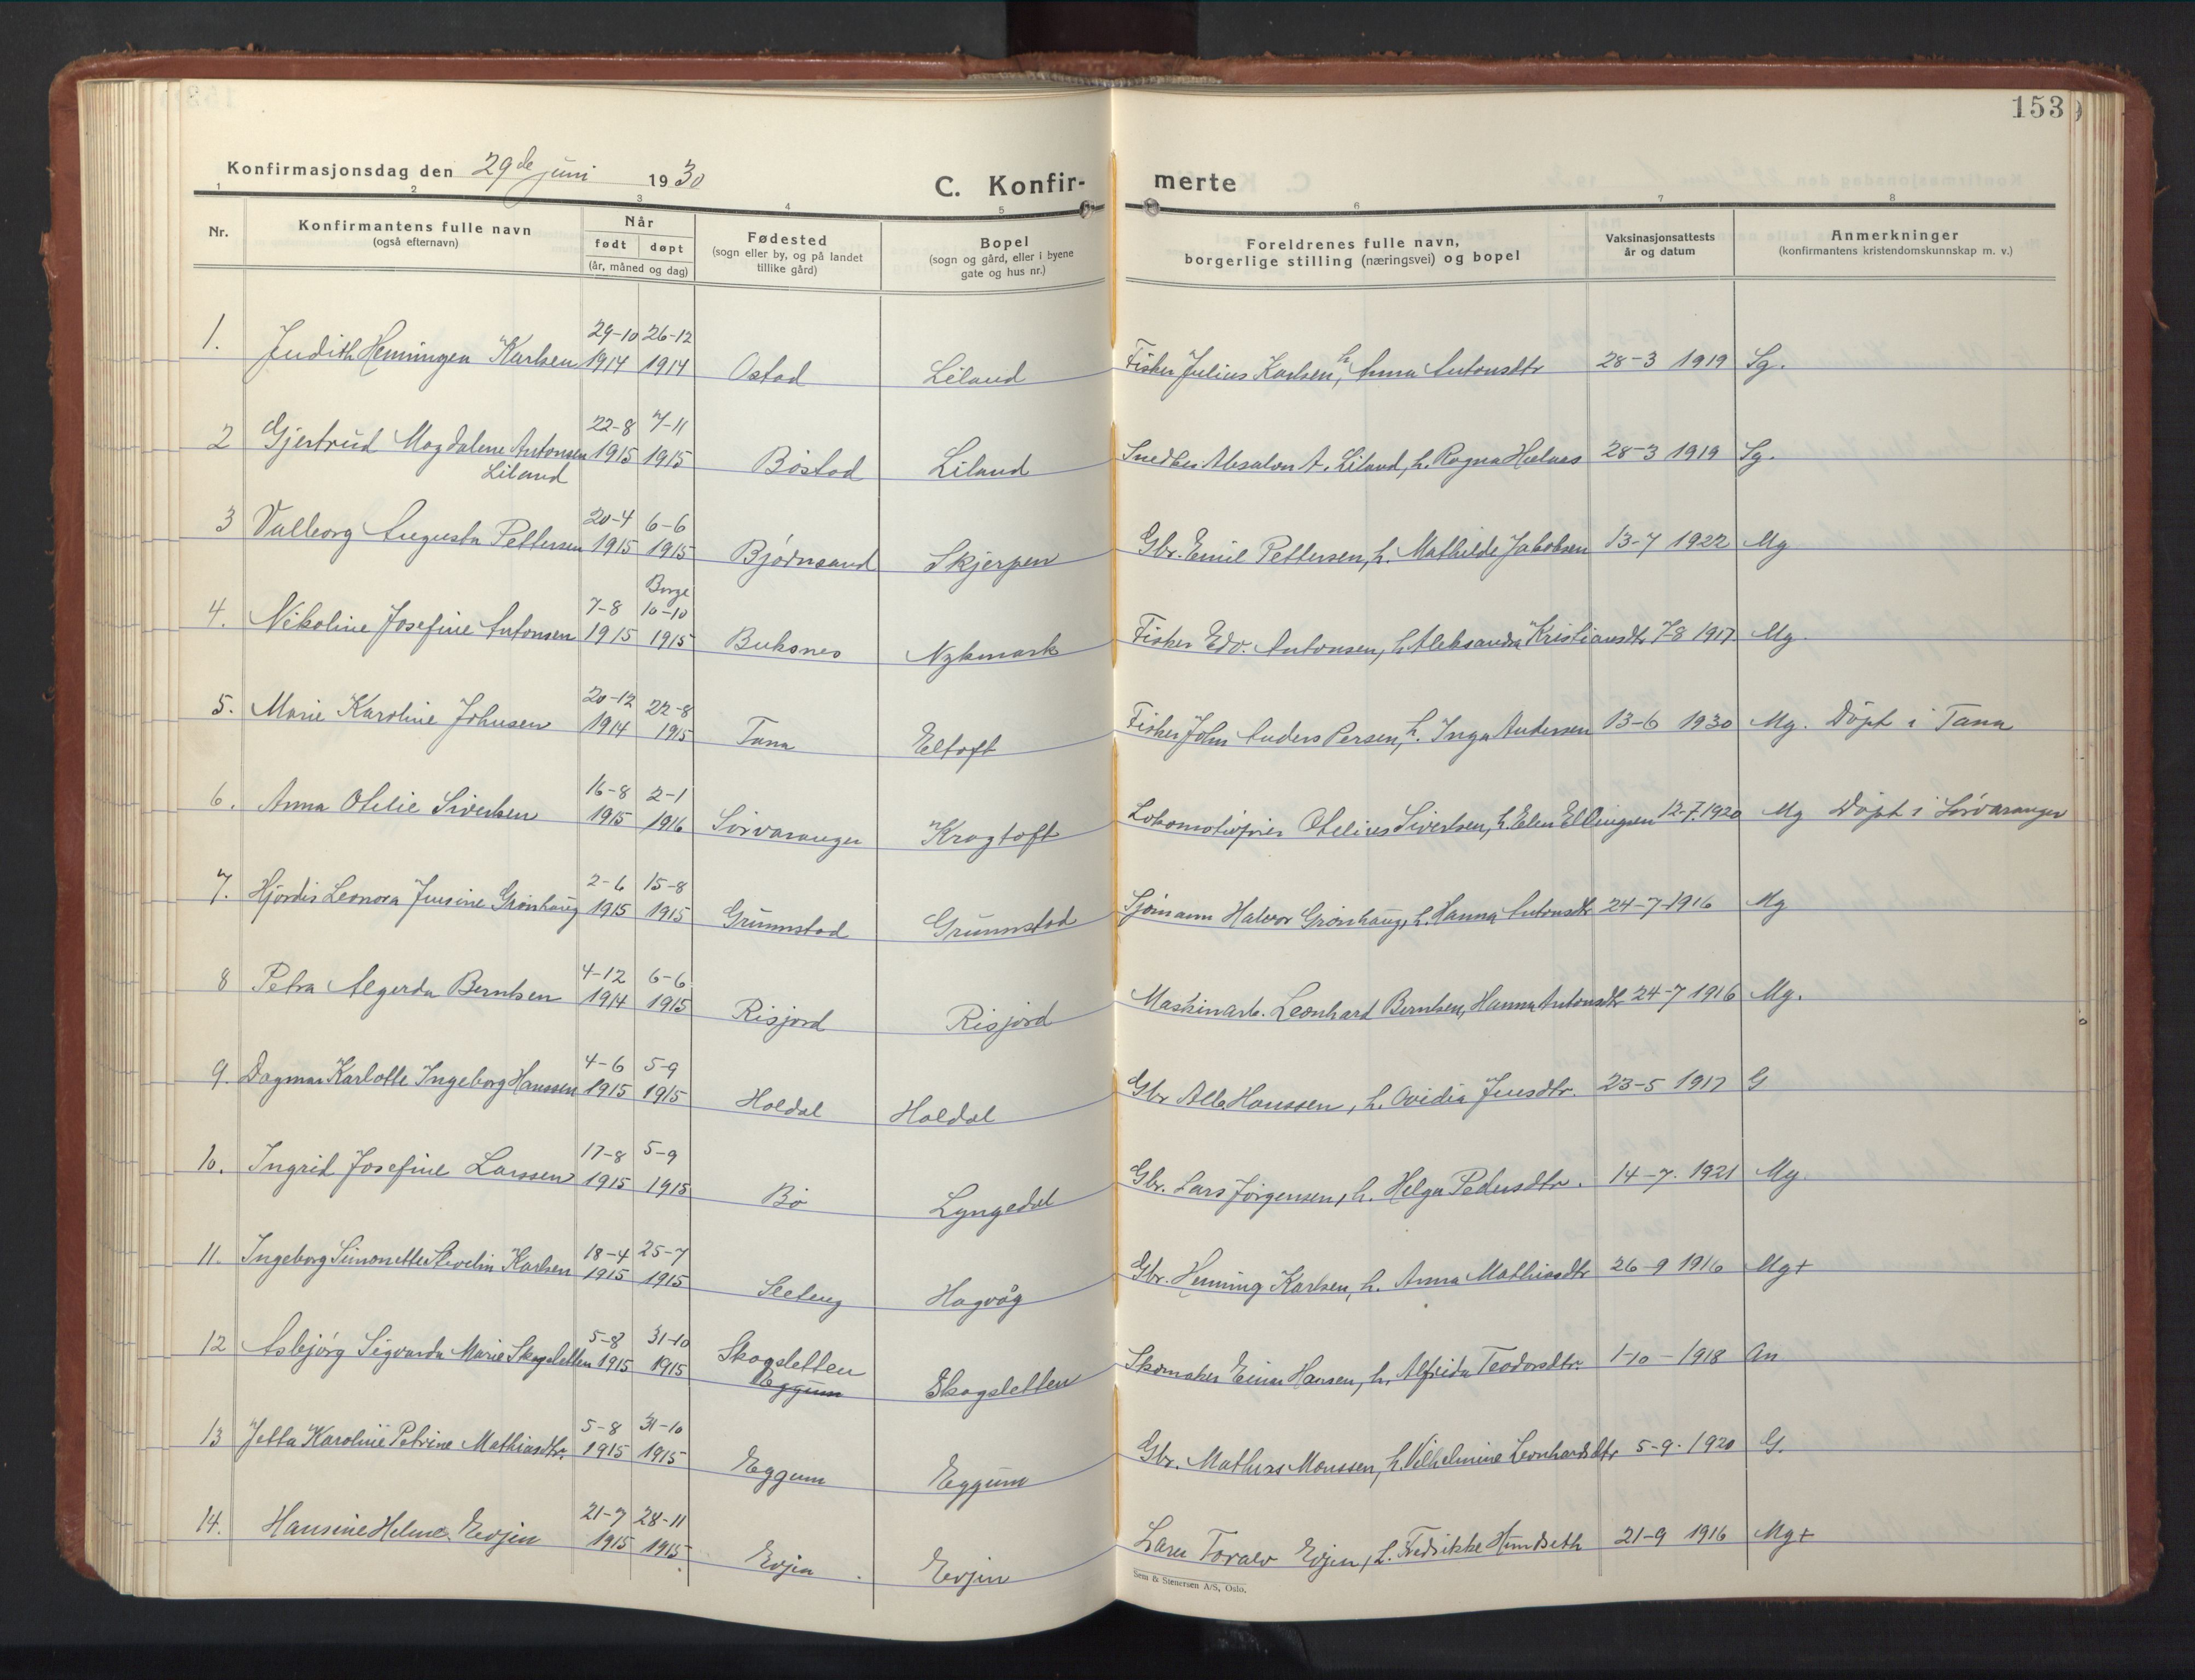 153
Konfirmasjonsdag den 29de juni 1930
C. Konfir- merte
1 2 3 4 5 6 7 8
Nr.
Konfirmantens fulle navn
(også efternavn)
Når
født døpt
(år, måned og dag)
Fødested
(sogn eller by, og på landet
tillike gård)
Bopel
(sogn og gård, eller i byene
gate og hus nr.)
Foreldrenes fulle navn,
borgerlige stilling (næringsvei) og bopel
Vaksinasjonsattests
år og datum
Anmerkninger
(konfirmantens kristendomskunnskap m. v.)
29-10 26-12
1. Judith Henningea Karlsen 1914 1914 Ostad Liland Fisker Julius Karlsen, h. Anna Antonsdtr 28-3 1919 Sg.
22-8 7-11
2 Gjertrud Magdalene Antonsen 1915 1915 Bøstad Liland Snedker Absalon A. Liland, h. Ragna 28-3 1919 Sg.
Liland
20-4 6-6
3 Valborg Augusta Pettersen 1915 1915 Bjørnsand Skjerpen Gbr. Emil Pettersen, h. Mathilde Jakobsen 13-7 1922 Mg
Borge
7-8 10-10
4. Nikoline Josefine Antonsen 1915 1915 Buksnes Nykmark Fisker Edv. Antonsen, h. Aleksandra Kristiansdtr 7-8 1917 Mg.
20-12 22-8
5. Marie Karoline Johnsen 1914 1915 Tana Eltoft Fisker John Anders Persen, h. Inga Andersen 13-6 1930 Mg. Døpt i Tana
16-8 2-1
6. Anna Otelie Sivertsen 1915 1916 Sørvaranger Kragtoft Lokomotivfører Otelius Sivertsen, h. Elen Ellingsen 12-7.1920 Mg Døpt i Sørvaranger
2-6 15-8
7. Hjørdis Leonora Jensine Grønhaug 1915 1915 Grunnstad Grunnstad Sjømann Halvor Grønhaug, h. Hanna Antonsdtr 24-7-1916 Mg
4-12 6-6
8 Petra Algerda Berntsen 1914 1915 Risjord Risjord Maskinarb. Leonhard Berntsen, Hanna Antonsdtr 24-7 1916 Mg.
4-6 5-9
9. Dagmar Karlotte Ingeborg Hanssen 1915 1915 Holdal Holdal Gbr Hanssen, h. Ovidia Jensdtr. 23-5 1917 G
17-8 5-9
10. Ingrid Josefine Larssen 1915 1915 Bø Lyngedal Gbr. Lars Jørgensen, h. Helga Pedersdtr. 14-7. 1921 Mg
18-4 25-7
11. Ingeborg Simonette Karlsen 1915 1915 Sleteng Hagvåg Gbr. Henning Karlsen, h. Anna Mathiasdtr 26-9 1916 Mg+
5-8 31-10
12 Asbjørg Sigvarda Marie Skogsletten 1915 1915 Skogsletten Skogsletten Skomaker Einar Hansen, h. Alfrida Teodorsdtr. 1-10-1918 An
Eggum
5-8 31-10
13 Jetta Karoline Petrine Mathiasdtr. 1915 1915 Eggum Eggum Gbr. Mathias Monssen, h. Vilhelmine Leonhardsdtr 5-9-1920 G.
21-7 28-11
14. Hansine Helene Evjen 1915 1915. Evjen Evjen Toralv Evjen, h. Fredrikke Hundseth 21-9 1916 Mg+
Sem & Stenersen A/S, Oslo.